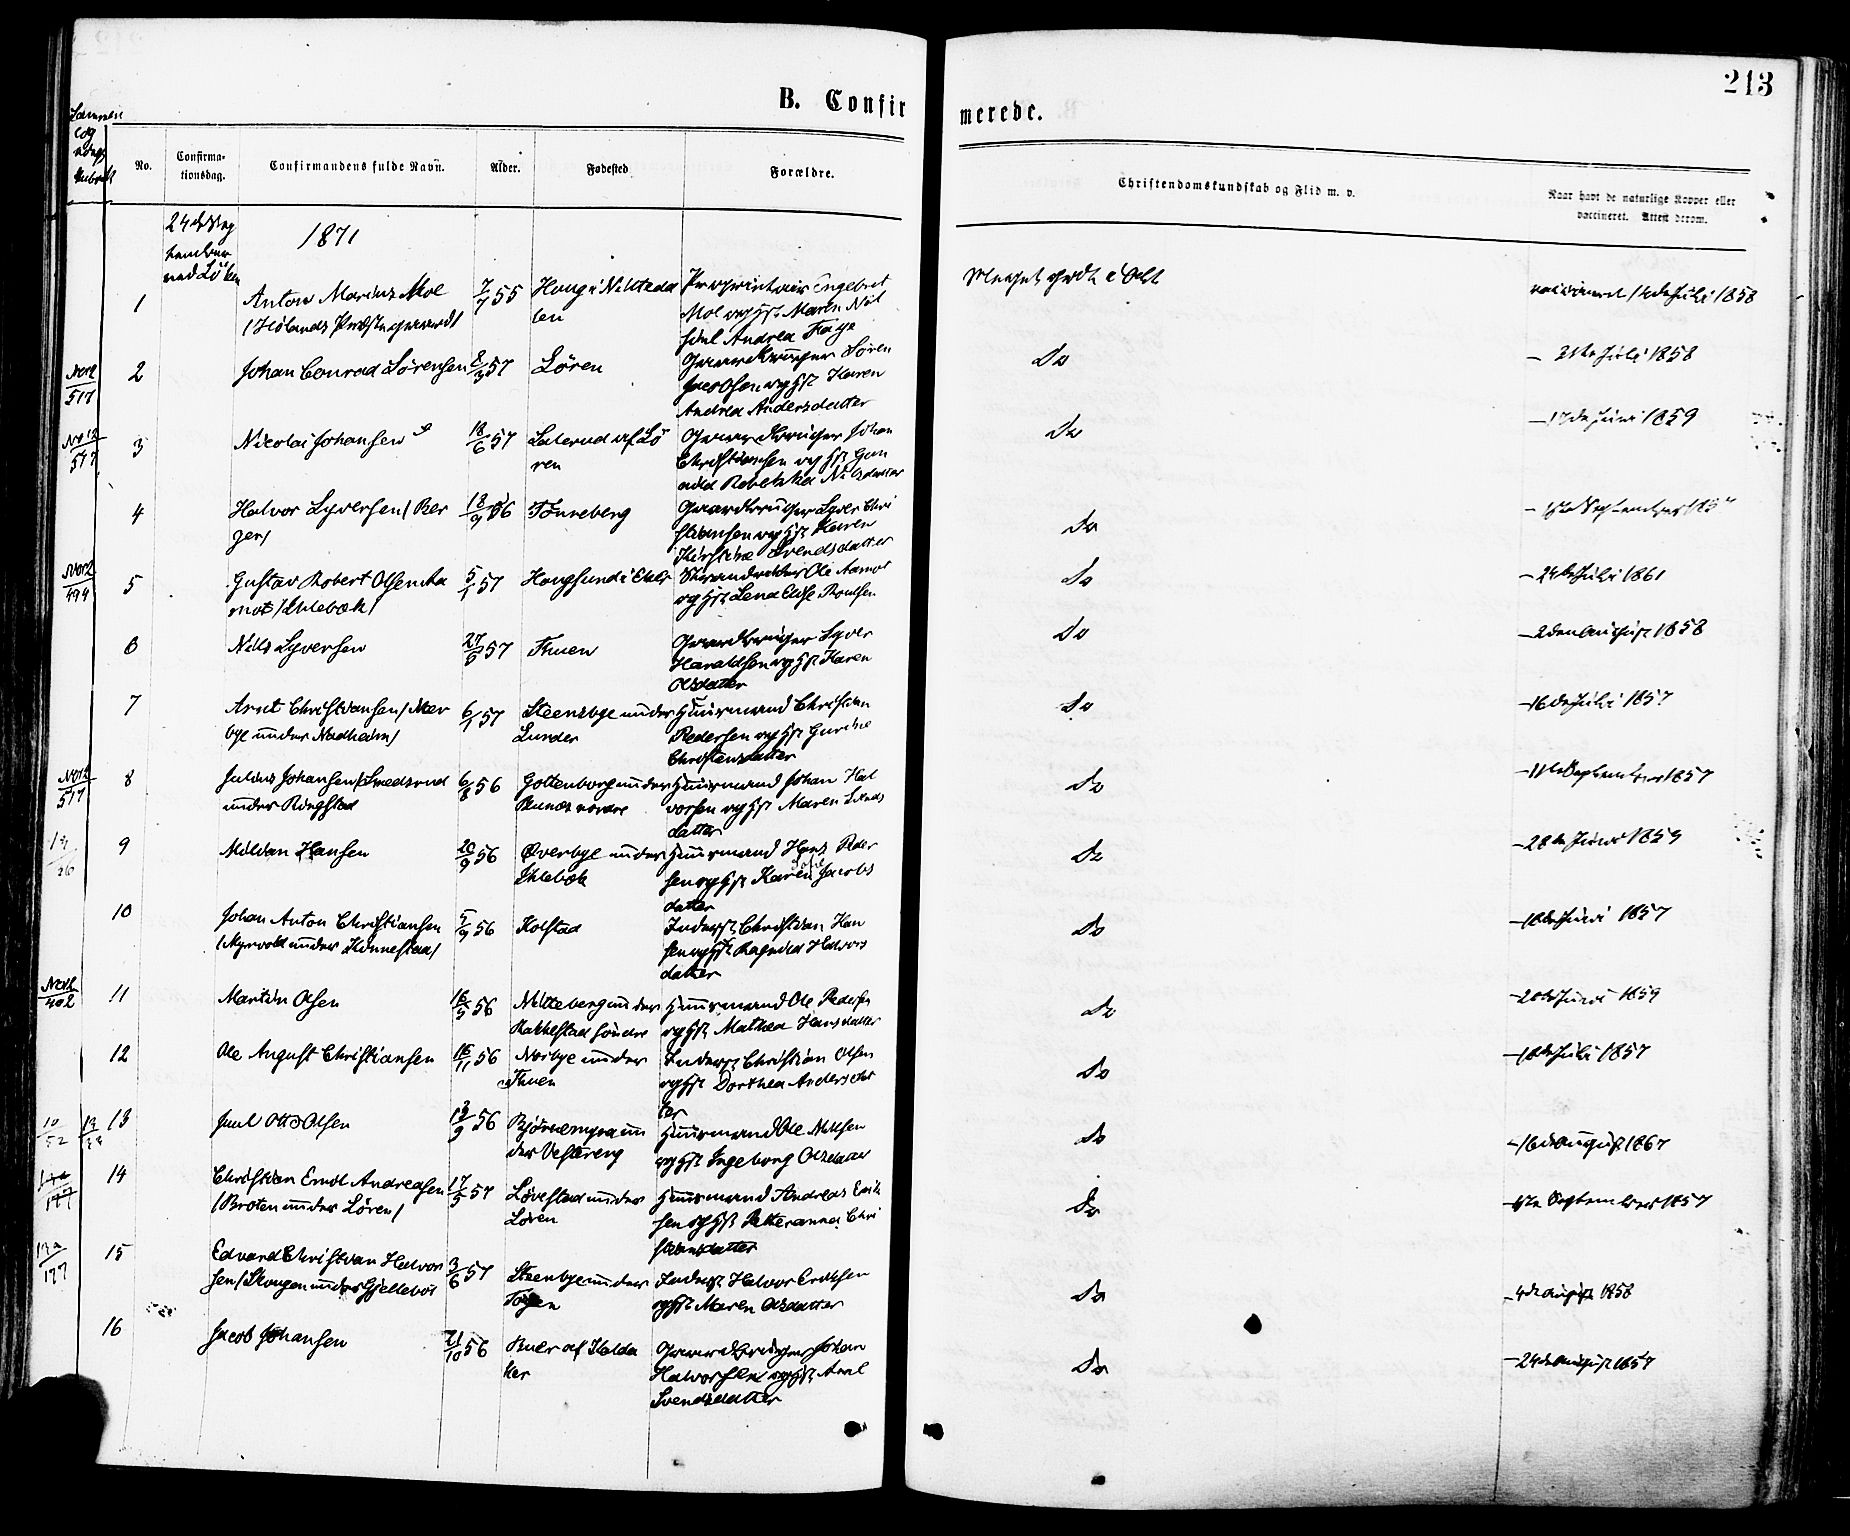 213
B. Confirmerede.
No.
Confirma-
tionsdag.
Confirmandens fulde Navn.
Alder.
Fødested
Forældre.
Christendomskundskab og Flid m. v.
Naar havt de naturlige Kopper eller
vaccineret. Attest derom.
24d Sep
tember
ved Löken
1871
1
Anton Marius Moe
/Hölands Præstegaard/
7/7 55
Haug i Nittedal
len
Proprietair Engebret
Moe og Hst. Maren Nil
sine Andrea Faye
Meget godt i Alt
vaccineret 14de Juli 1858
No 12
517
2
Johan Conrad Lørensen
8/3 57
Lören
Gaardbruger Lören
Jacobsen og Hst. Karen
Andrea Andersdatter
Do
- 21de Juli 1858
No 12
517
3
Nicolai Johansen
18/6 57
Laterud af Lö
ren
Gaardbruger Johan
Christiansen og Hst. Gun
ild Rebekka Nilsdatter
Do
- 17de Juni 1859
4
Halvor Syversen / Ber
ger/
18/9 56
Tönneberg
Gaardbruger Syver Chri
stiansen og Hst. Karen
Kirstine Svendsdatter
Do
No 12
494
5
Gustav Robert Olsen Aa
mot /Ihlebæk/
5/1 57
Hougsund i Eker
Ole Aamot
og Hst. Lena Elise Poulsen
Do
- 24de Juli 1861
6
Nils Syversen
27/5 57
Thuen
Gaardbruger Syver
Haraldsen og Hst. Karen
Olsdatter
Do
- 2den August 1858
7
Arnt Christiansen /
bye under Nadheim/
6/1 57
Steensbye under
Lunder
Huusmand Christian
Pedersen og Hst. Gurine
Christensdatter
Do
- 16de Juli 1857
No 12
517
8
Julius Johansen /Svedsrud
under Ringstad
6/8 56
Gottenborg under
nordre
Huusmand Johan Hal
vorsen og Hst. Maren
datter
Do
- 11te September 1857
9
Mildan Hansen
20/9 56
Øverbye under
Ihlebæk
Huusmand Hans Peder
sen og Hst. Karen Jacobs
datter
Do
- 28de Juni 1859
10
Johan Anton Christiansen
/Myrvold under Kinnestad/
5/9 56
Kolstad
Inderst Christian Han
sen og Hst. Ragnild Halvors
datter
Do
- 18de Juni 1857
No 12
402
11
Martin Olsen
16/5 56
Mitteberg under
Rakkestad söndre
Huusmand Ole Pedersen
og Hst. Mathea Hansdatter
Do
- 20de Juni 1859
12
Ole August Christiansen
16/11 56
Norbye under
Thuen
Inderst Christian Olsen
og Hst. Dorthea Andersdat
ter
Do
- 18de Juli 1857
13
Juul Otto Olsen
13/9 56
Björnemyra un
der Vestereng
Huusmand Ole Nilsen
og Hst. Ingeborg Olsdatter
Do
- 16de August 1867
14
Christian Emil Andreasen
/Braten under Lören/
17/5 57
Lövestad under
Lören
Huusmand Andreas Erik
sen og Hst. Petteranna Chri
stiansdatter
Do
- 4de September 1857
15
Edvard Christian Halvor
sen /Skougen under Gjellebøl
3/6 57
Steenbye under
Toyen
Inderst Halvor Eriksen
og Hst. Maren Olsdatter
Do
- 4de August 1858
16
Jacob Johansen
21/10 56
Buer af Halda
ker
Gaardbruger Johan
Halvorsen og Hst. Anne
Svendsdatter
Do
- 24de August 1857